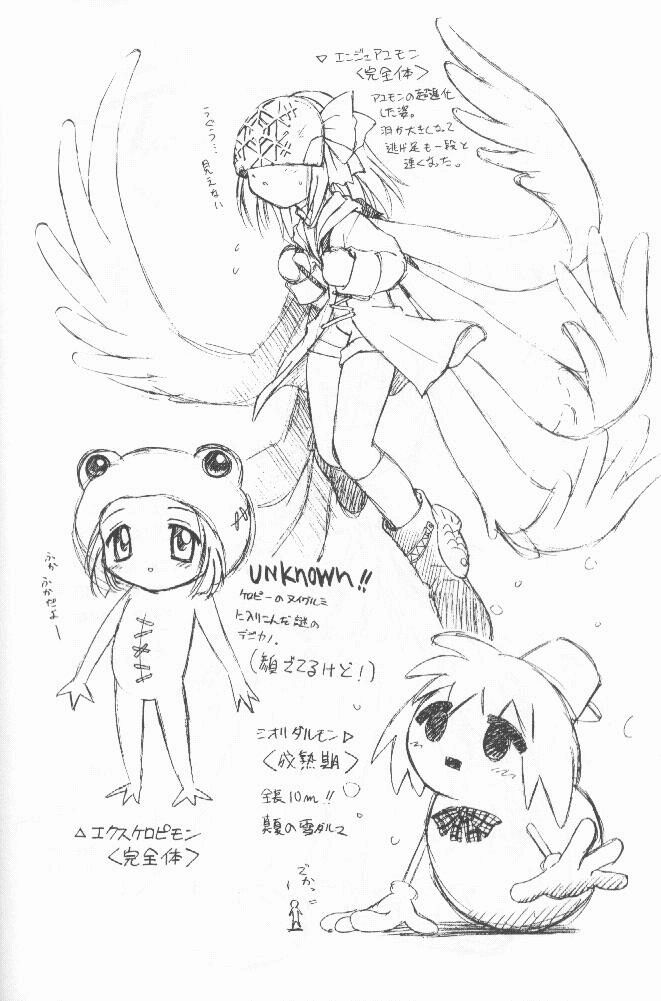 ▽エンジェアユモン
<完全体>
アユモンの超進化
した姿。
羽が大きくなって
逃げ足も一段と
速くなった。
うぐぅ…見えない
ぶかぶかだよー
UNKNOWN!!
ケロピーのヌイグルミ
に入りこんだ謎の
デジカノ。
(顔でてるけど!)
ミオリダルモン▷
<成熟期>
全長10m!!
真夏の雪ダルマ
△エクスケロピモン
<完全体>
でかっ